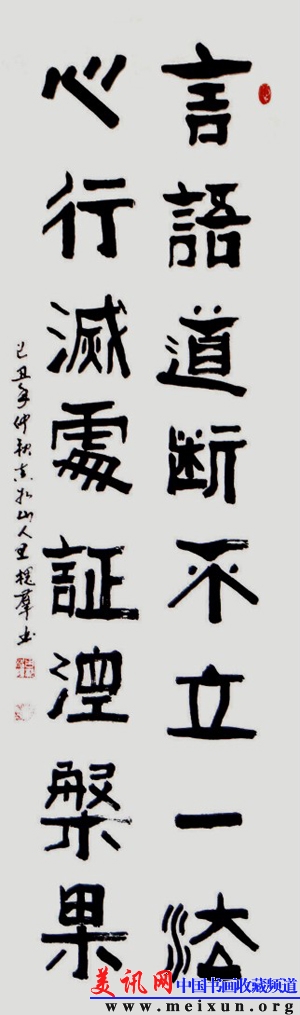 言語道断不立一法
心行滅處証涅槃果
己丑年仲秋古松山人王槐群书
美讯网
中国书画收藏频道
www.meixun.org